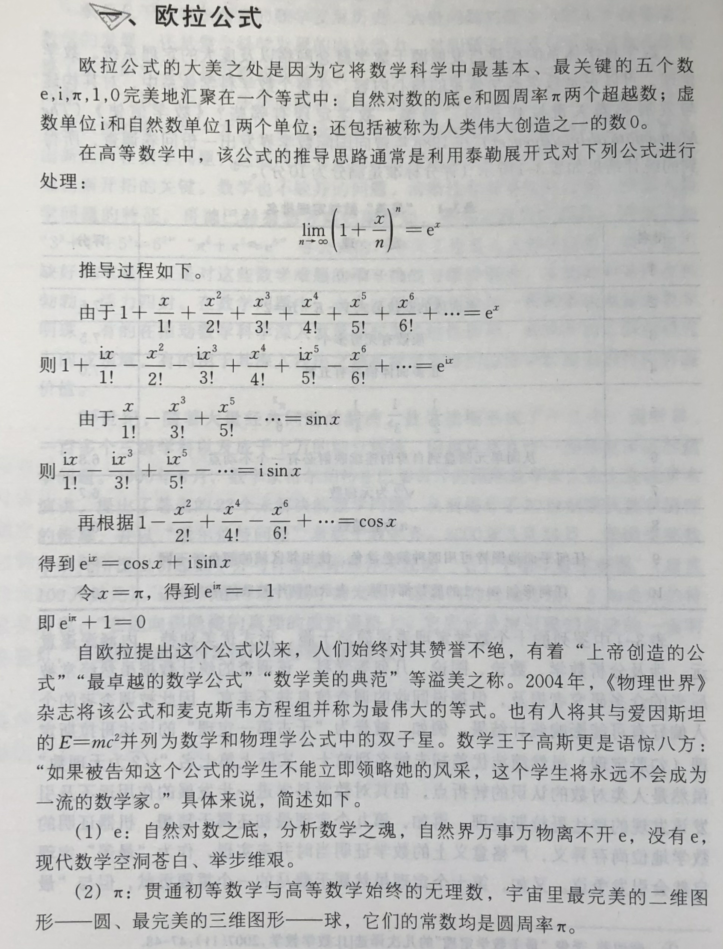 一、欧拉公式
欧拉公式的大美之处是因为它将数学科学中最基本、最关键的五个数
e,i,π,1,0完美地汇聚在一个等式中：自然对数的底e和圆周率π两个超越数；虚
数单位i和自然数单位1两个单位；还包括被称为人类伟大创造之一的数0。
在高等数学中，该公式的推导思路通常是利用泰勒展开式对下列公式进行
处理：
lim_{n→∞}(1+x/n)^n=e^x
推导过程如下。
由于1+x/1!+x²/2!+x³/3!+x⁴/4!+x⁵/5!+x⁶/6!+…=e^x
则1+ix/1!-x²/2!-ix³/3!+x⁴/4!+ix⁵/5!-x⁶/6!+…=e^{ix}
由于x/1!-x³/3!+x⁵/5!-…=sinx
则ix/1!-ix³/3!+ix⁵/5!-…=isinx
再根据1-x²/2!+x⁴/4!-x⁶/6!+…=cosx
得到e^{ix}=cosx+isinx
令x=π，得到e^{iπ}=-1
即e^{iπ}+1=0
自欧拉提出这个公式以来，人们始终对其赞誉不绝，有着“上帝创造的公
式”“最卓越的数学公式”“数学美的典范”等溢美之称。2004年，《物理世界》
杂志将该公式和麦克斯韦方程组并称为最伟大的等式。也有人将其与爱因斯坦
的E=mc²并列为数学和物理学公式中的双子星。数学王子高斯更是语惊八方：
“如果被告知这个公式的学生不能立即领略她的风采，这个学生将永远不会成为
一流的数学家。”具体来说，简述如下。
（1）e：自然对数之底，分析数学之魂，自然界万事万物离不开e，没有e，
现代数学空洞苍白、举步维艰。
（2）π：贯通初等数学与高等数学始终的无理数，宇宙里最完美的二维图
形——圆、最完美的三维图形——球，它们的常数均是圆周率π。